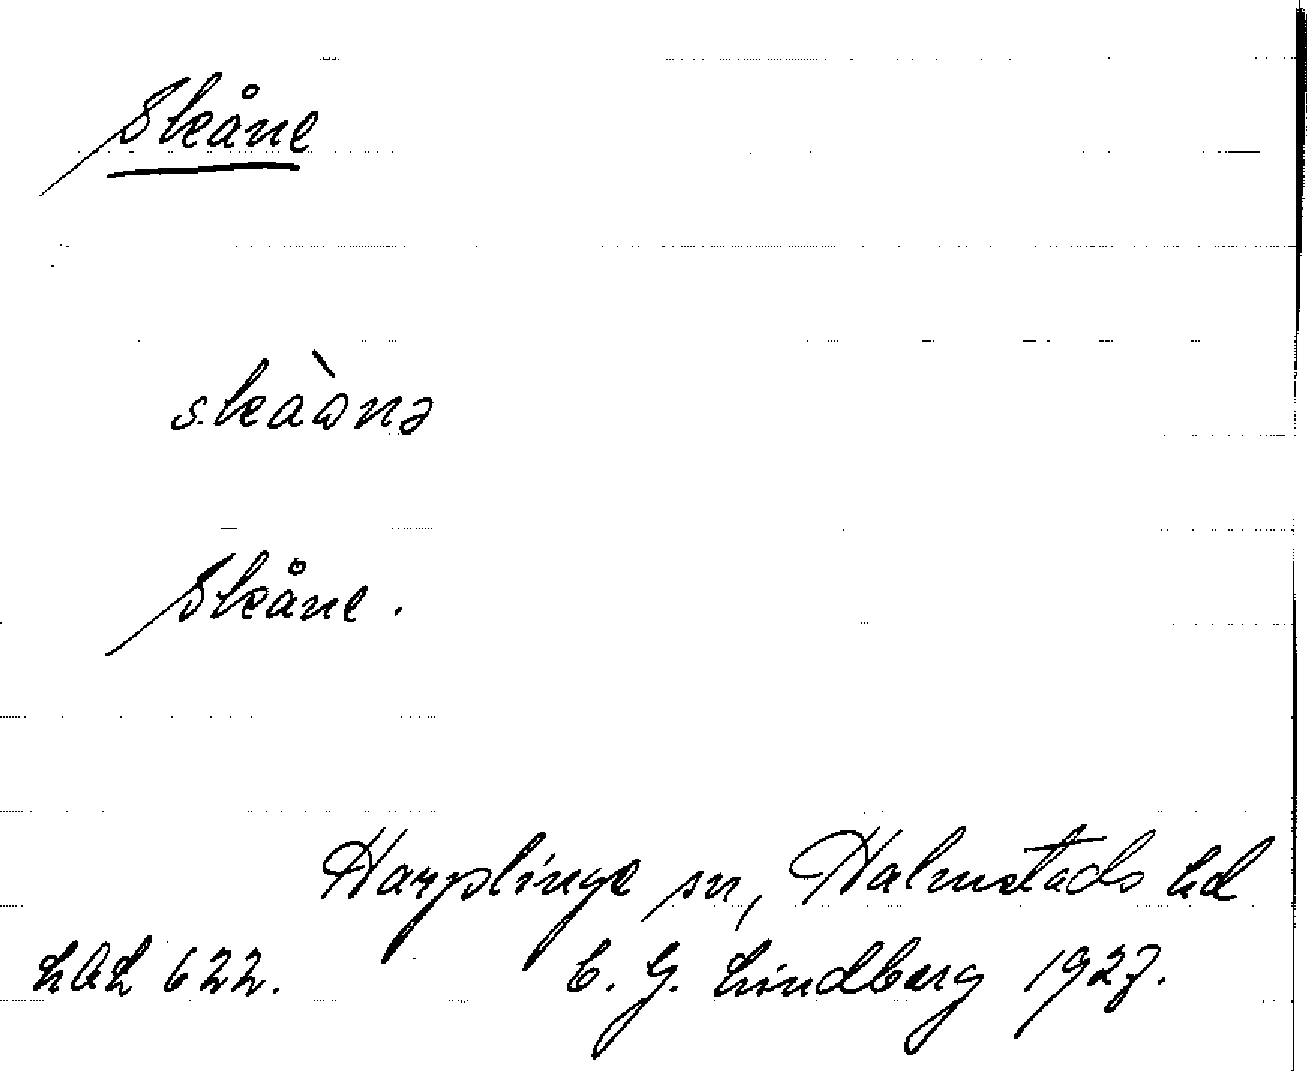 Skåne
skaànə
Skåne.
Harplinge sn, Halmstads hd
LAL 622. C. G. Lindberg 1927.